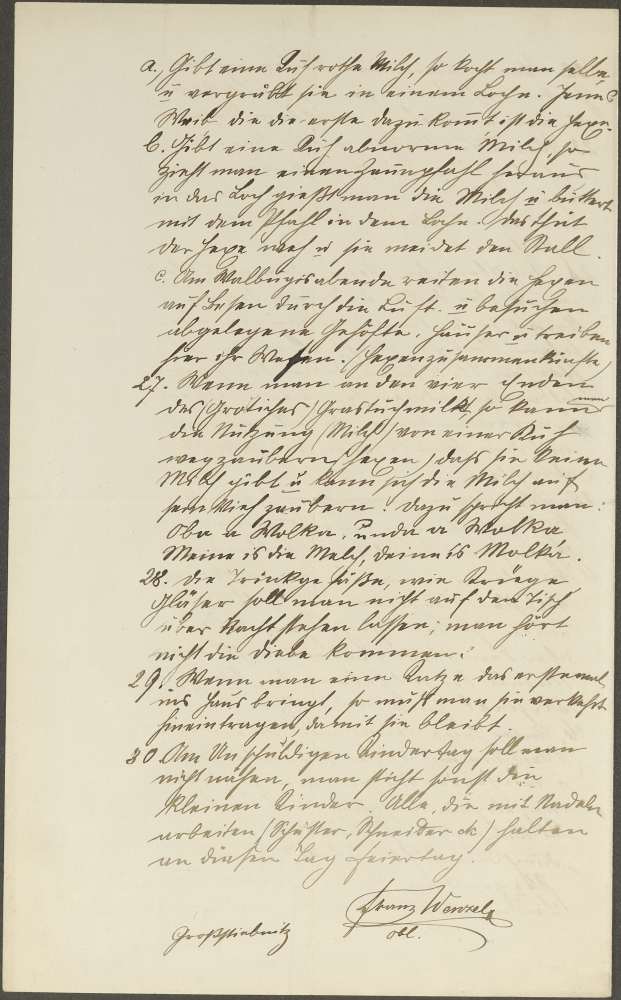 a., Gibt eine Kuh rothe Milch, so kocht man selbe
u vergräbt sie in einem Loche. Jenes
Weib die die erste dazu kommt, ist die Hexe.
b. Gibt eine Kuh abnorme Milch, so
zieht man einen Zaunpfahl heraus
in das Loch gießt man die Milch u buttert
mit dem Pfahl in dem Loche. Das thut
der Hexe weh u sie meidet den Stall.
c. Am Walburgisabende reiten die Hexen
auf Besen durch die Luft. u besuchen
abgelegene Gehöfte, Häuser u treiben
hier ihr Wesen. (Hexenzusammenkünfte)
27. Wenn man an den vier Enden
des Grastuch milkt, so kann man
die Nutzung (Milch) von einer Kuh
wegzaubern hexen, daß sie keine
Milch gibt u kann sich die Milch auf
sein Vieh zaubern. Dazu spricht man:
Oba a Wolka, unda a Wolka
Meine is die Melch, deine is Molka.
28. Die Trinkgefäße, wie Krüge
Gläser soll man nicht auf dem Tisch
über Nacht stehen lassen; man hört
nicht die Diebe kommen.
29. Wenn man eine Katze das erstemal
ins Haus bringt, so muß man sie verkehrt
hineintragen, damit sie bleibt.
30. Am Unschuldigen Kindertag soll man
nicht nähen, man sticht sonst die
kleinen Kinder. Alle, die mit Nadeln
arbeiten (Schuster, Schneider etc) halten
an diesen Tag Feiertag.
Franz Wenzel
Großstiebnitz obl.